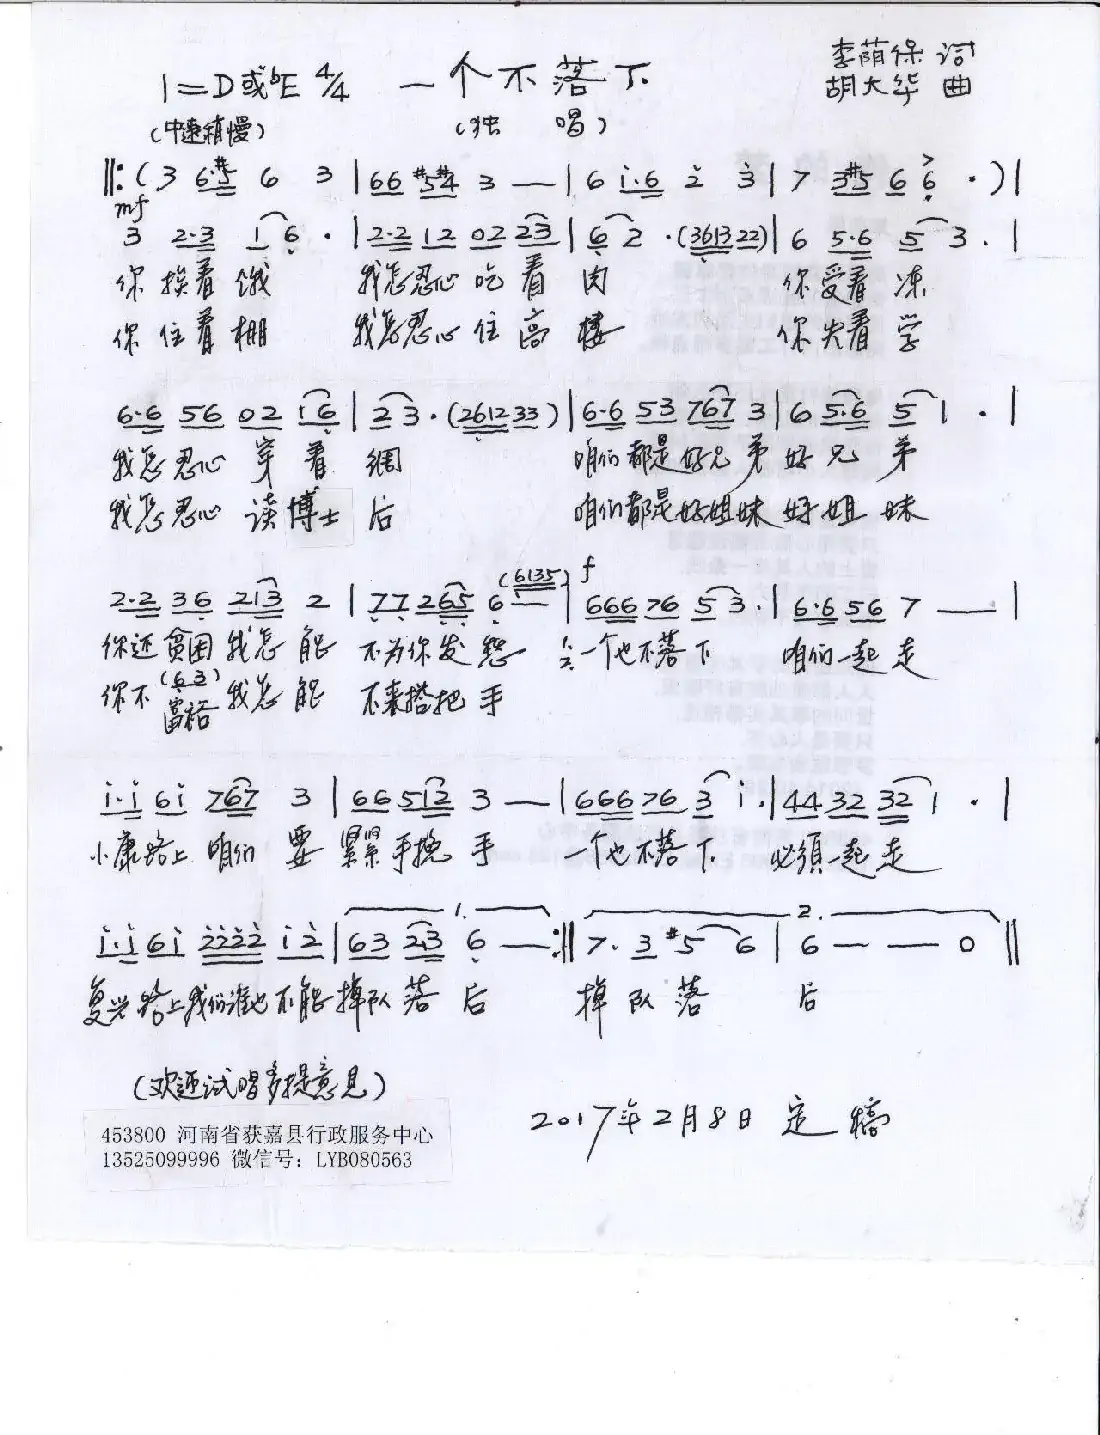 1=D或♭E 4/4 一个不落下 李荫保 词
胡大华 曲
(中速稍慢) (独 唱)
‖:(3 6·#5 6 3 | 66 #5#4 3 — | 6 i·6 2 3 | 7 3#5 6 6 ·)|
mf
3 2·3 1 6 · | 2·2 12 02 23 | 6 2 ·(361322)| 6 5·6 5 3 · |
你 挨着 饿 我怎忍心 吃 着 肉 你 受着 冻
你 住着 棚 我怎忍心 住 高 楼 你 失着 学
6·6 56 02 i6 | 2 3 ·(261233)| 6·6 53 767 3 | 6 5·6 5 1 · |
我怎忍心 穿 着 绸 咱们都是好兄弟 好 兄 弟
我怎忍心 读 博士 后 咱们都是好姐妹 好 姐 妹
(6135) f
2·2 36 213 2 | 77 265 6 — | 666 76 5 3 · | 6·6 56 7 — |
你还贫困我怎 能 不为你发愁 一个也不落下 咱们一起 走
(63)
你不富裕我怎 能 不来搭把 手
i·i 6i 767 3 | 66 512 3 — | 666 76 3 i · | 44 32 32 1 · |
小康路上 咱们 要 紧紧手挽 手 一个也不落 下 必须一起 走
1. 2.
i·i 6i 2222 i2 | 63 2·3 6 — :‖ 7· 3 #5 6 | 6 — — 0 ‖
复兴路上我们谁也不能掉队 落 后 掉 队 落 后
(欢迎试唱多提意见)
453800 河南省获嘉县行政服务中心
13525099996 微信号：LYB080563
2017年2月8日 定稿